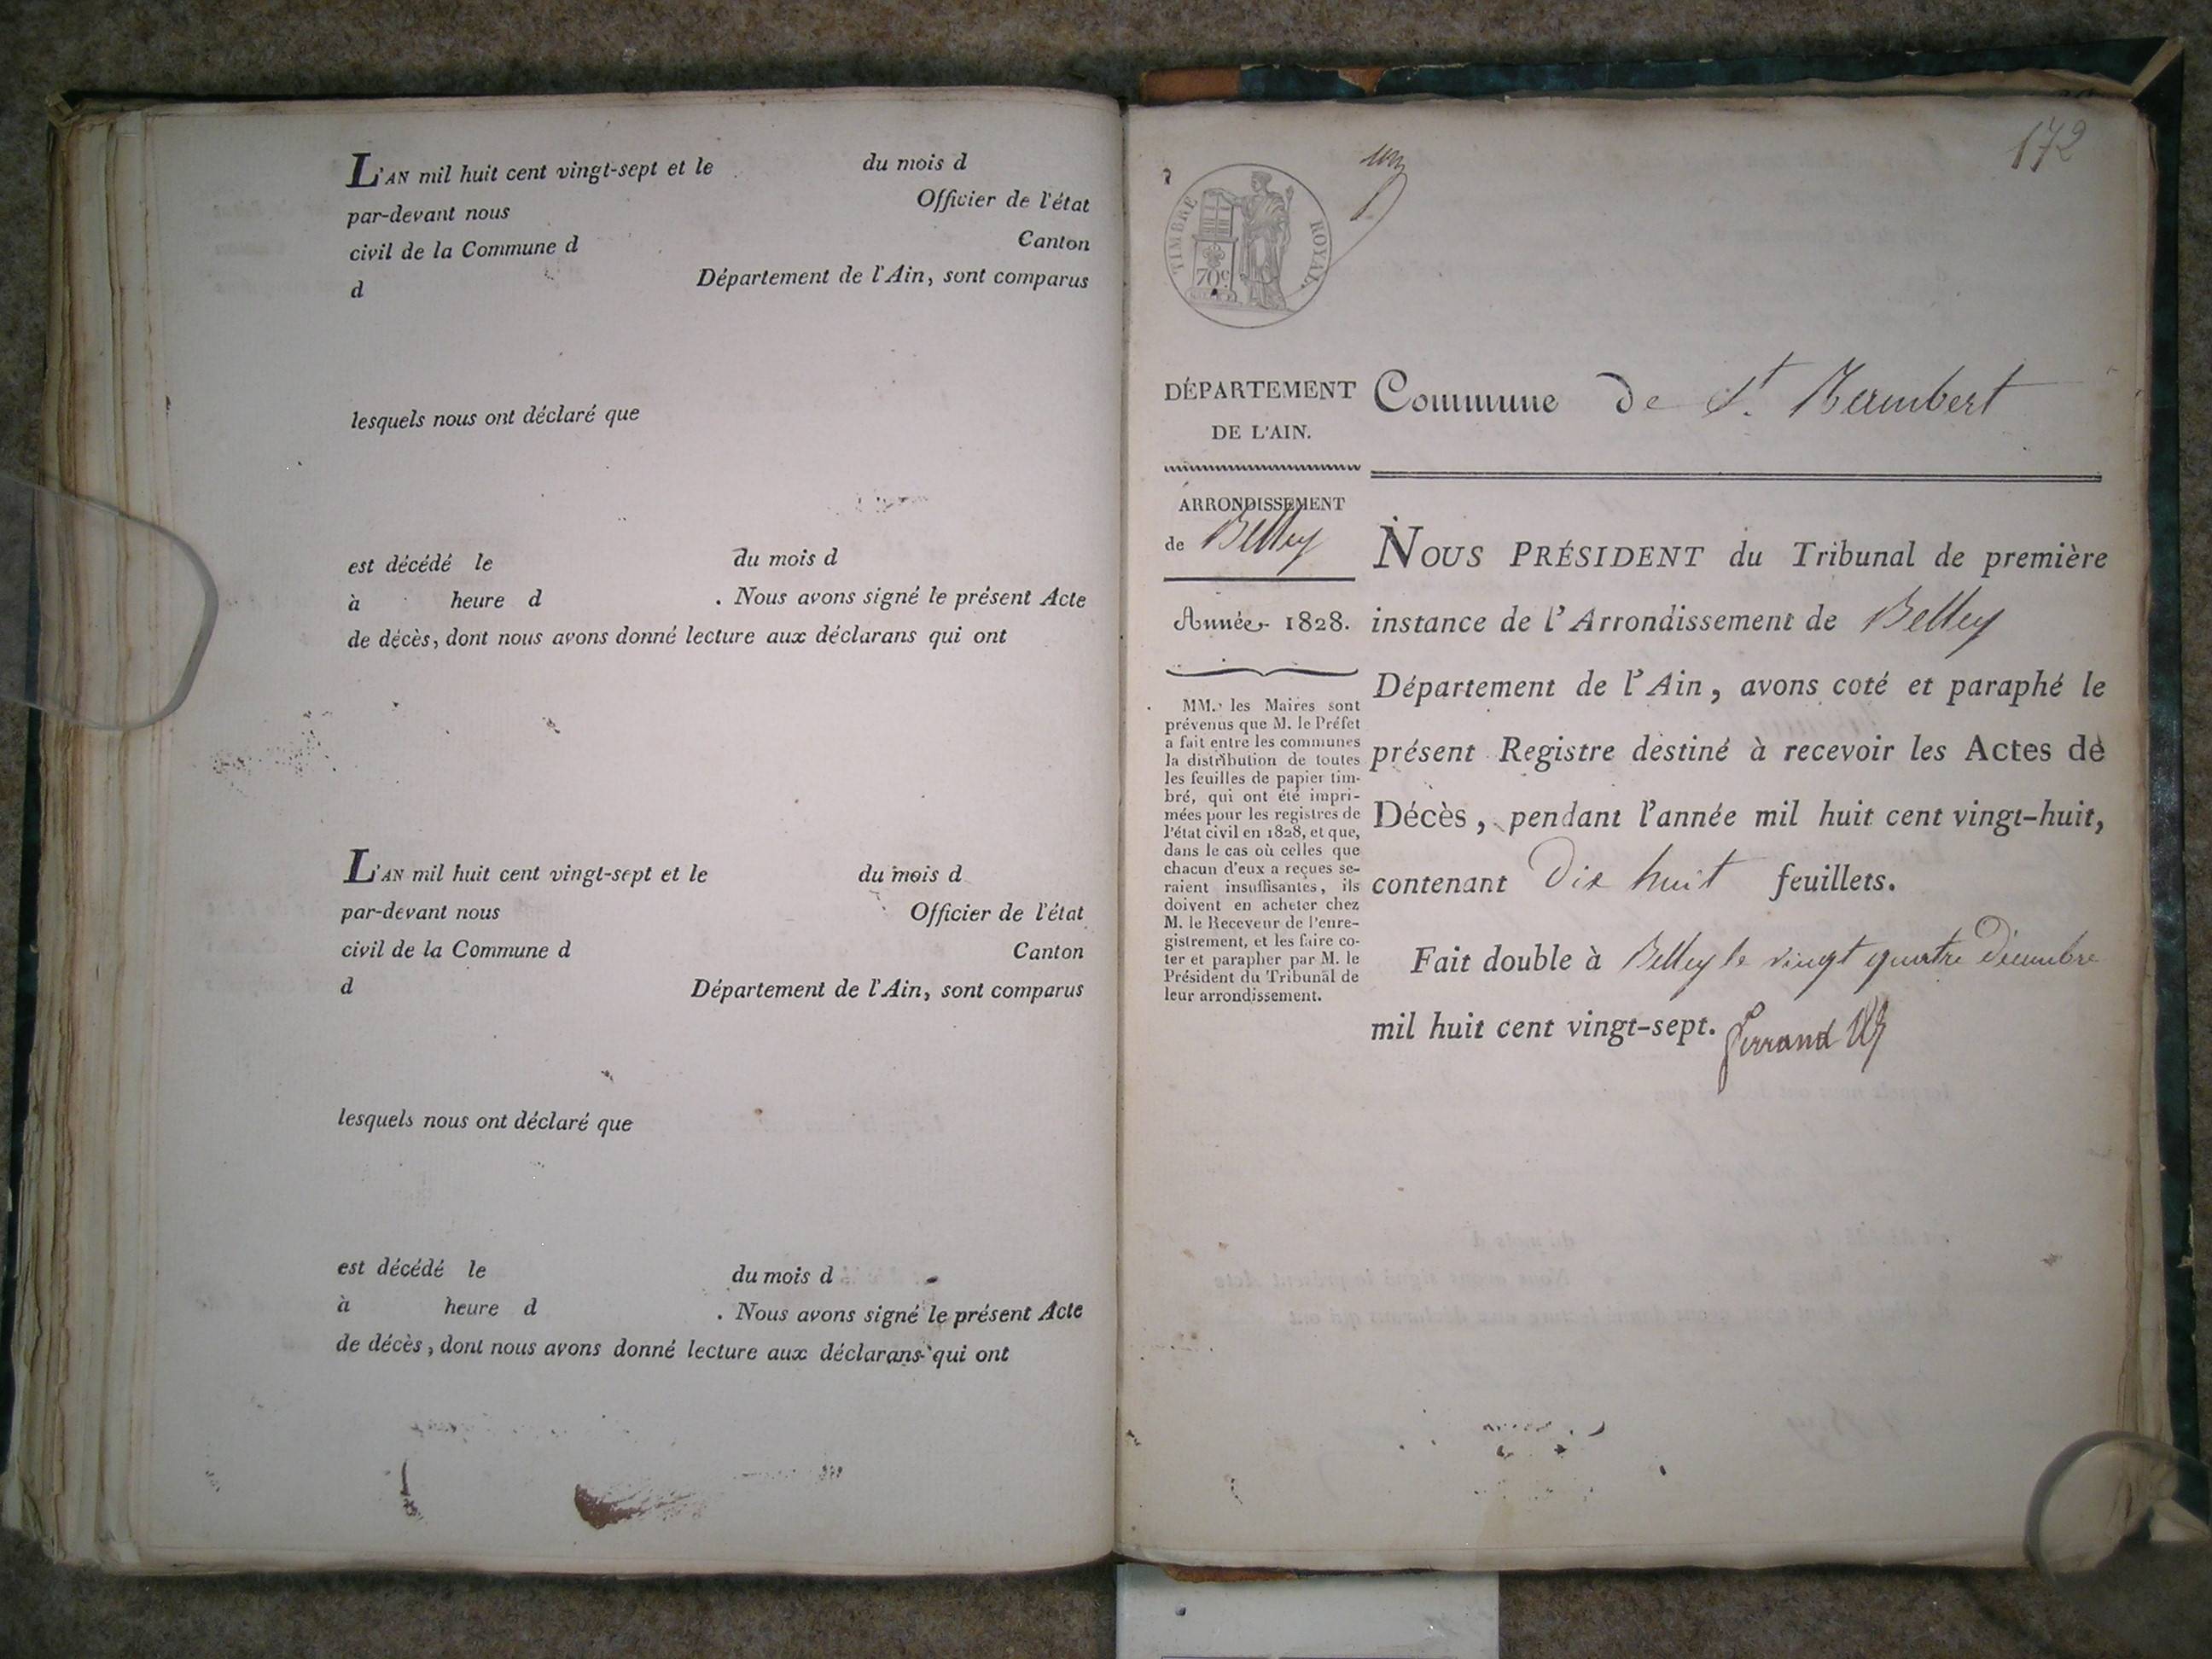 L'AN mil huit cent vingt-sept et le du mois d
par-devant nous Officier de l'état
civil de la Commune d Canton
d Département de l'Ain, sont comparus
lesquels nous ont déclaré que
est décédé le du mois d
à heure d . Nous avons signé le présent Acte
de décès, dont nous avons donné lecture aux déclarans qui ont
L'AN mil huit cent vingt-sept et le du mois d
par-devant nous Officier de l'état
civil de la Commune d Canton
d Département de l'Ain, sont comparus
lesquels nous ont déclaré que
est décédé le du mois d
à heure d . Nous avons signé le présent Acte
de décès, dont nous avons donné lecture aux déclarans qui ont
172
TIMBRE ROYAL.
70c
DÉPARTEMENT
DE L'AIN.
ARRONDISSEMENT
de Belley
Année 1828.
MM. les Maires sont
prévenus que M. le Préfet
a fait entre les communes
la distribution de toutes
les feuilles de papier tim-
bré, qui ont été impri-
mées pour les registres de
l'état civil en 1828, et que,
dans le cas où celles que
chacun d'eux a reçues se-
raient insuffisantes, ils
doivent en acheter chez
M. le Receveur de l'enre-
gistrement, et les faire co-
ter et parapher par M. le
Président du Tribunal de
leur arrondissement.
Commune de St. Rambert
NOUS PRÉSIDENT du Tribunal de première
instance de l'Arrondissement de Belley
Département de l'Ain, avons coté et paraphé le
présent Registre destiné à recevoir les Actes de
Décès, pendant l'année mil huit cent vingt-huit,
contenant Dix huit feuillets.
Fait double à Belley le vingt quatre Décembre
mil huit cent vingt-sept. Ferrand